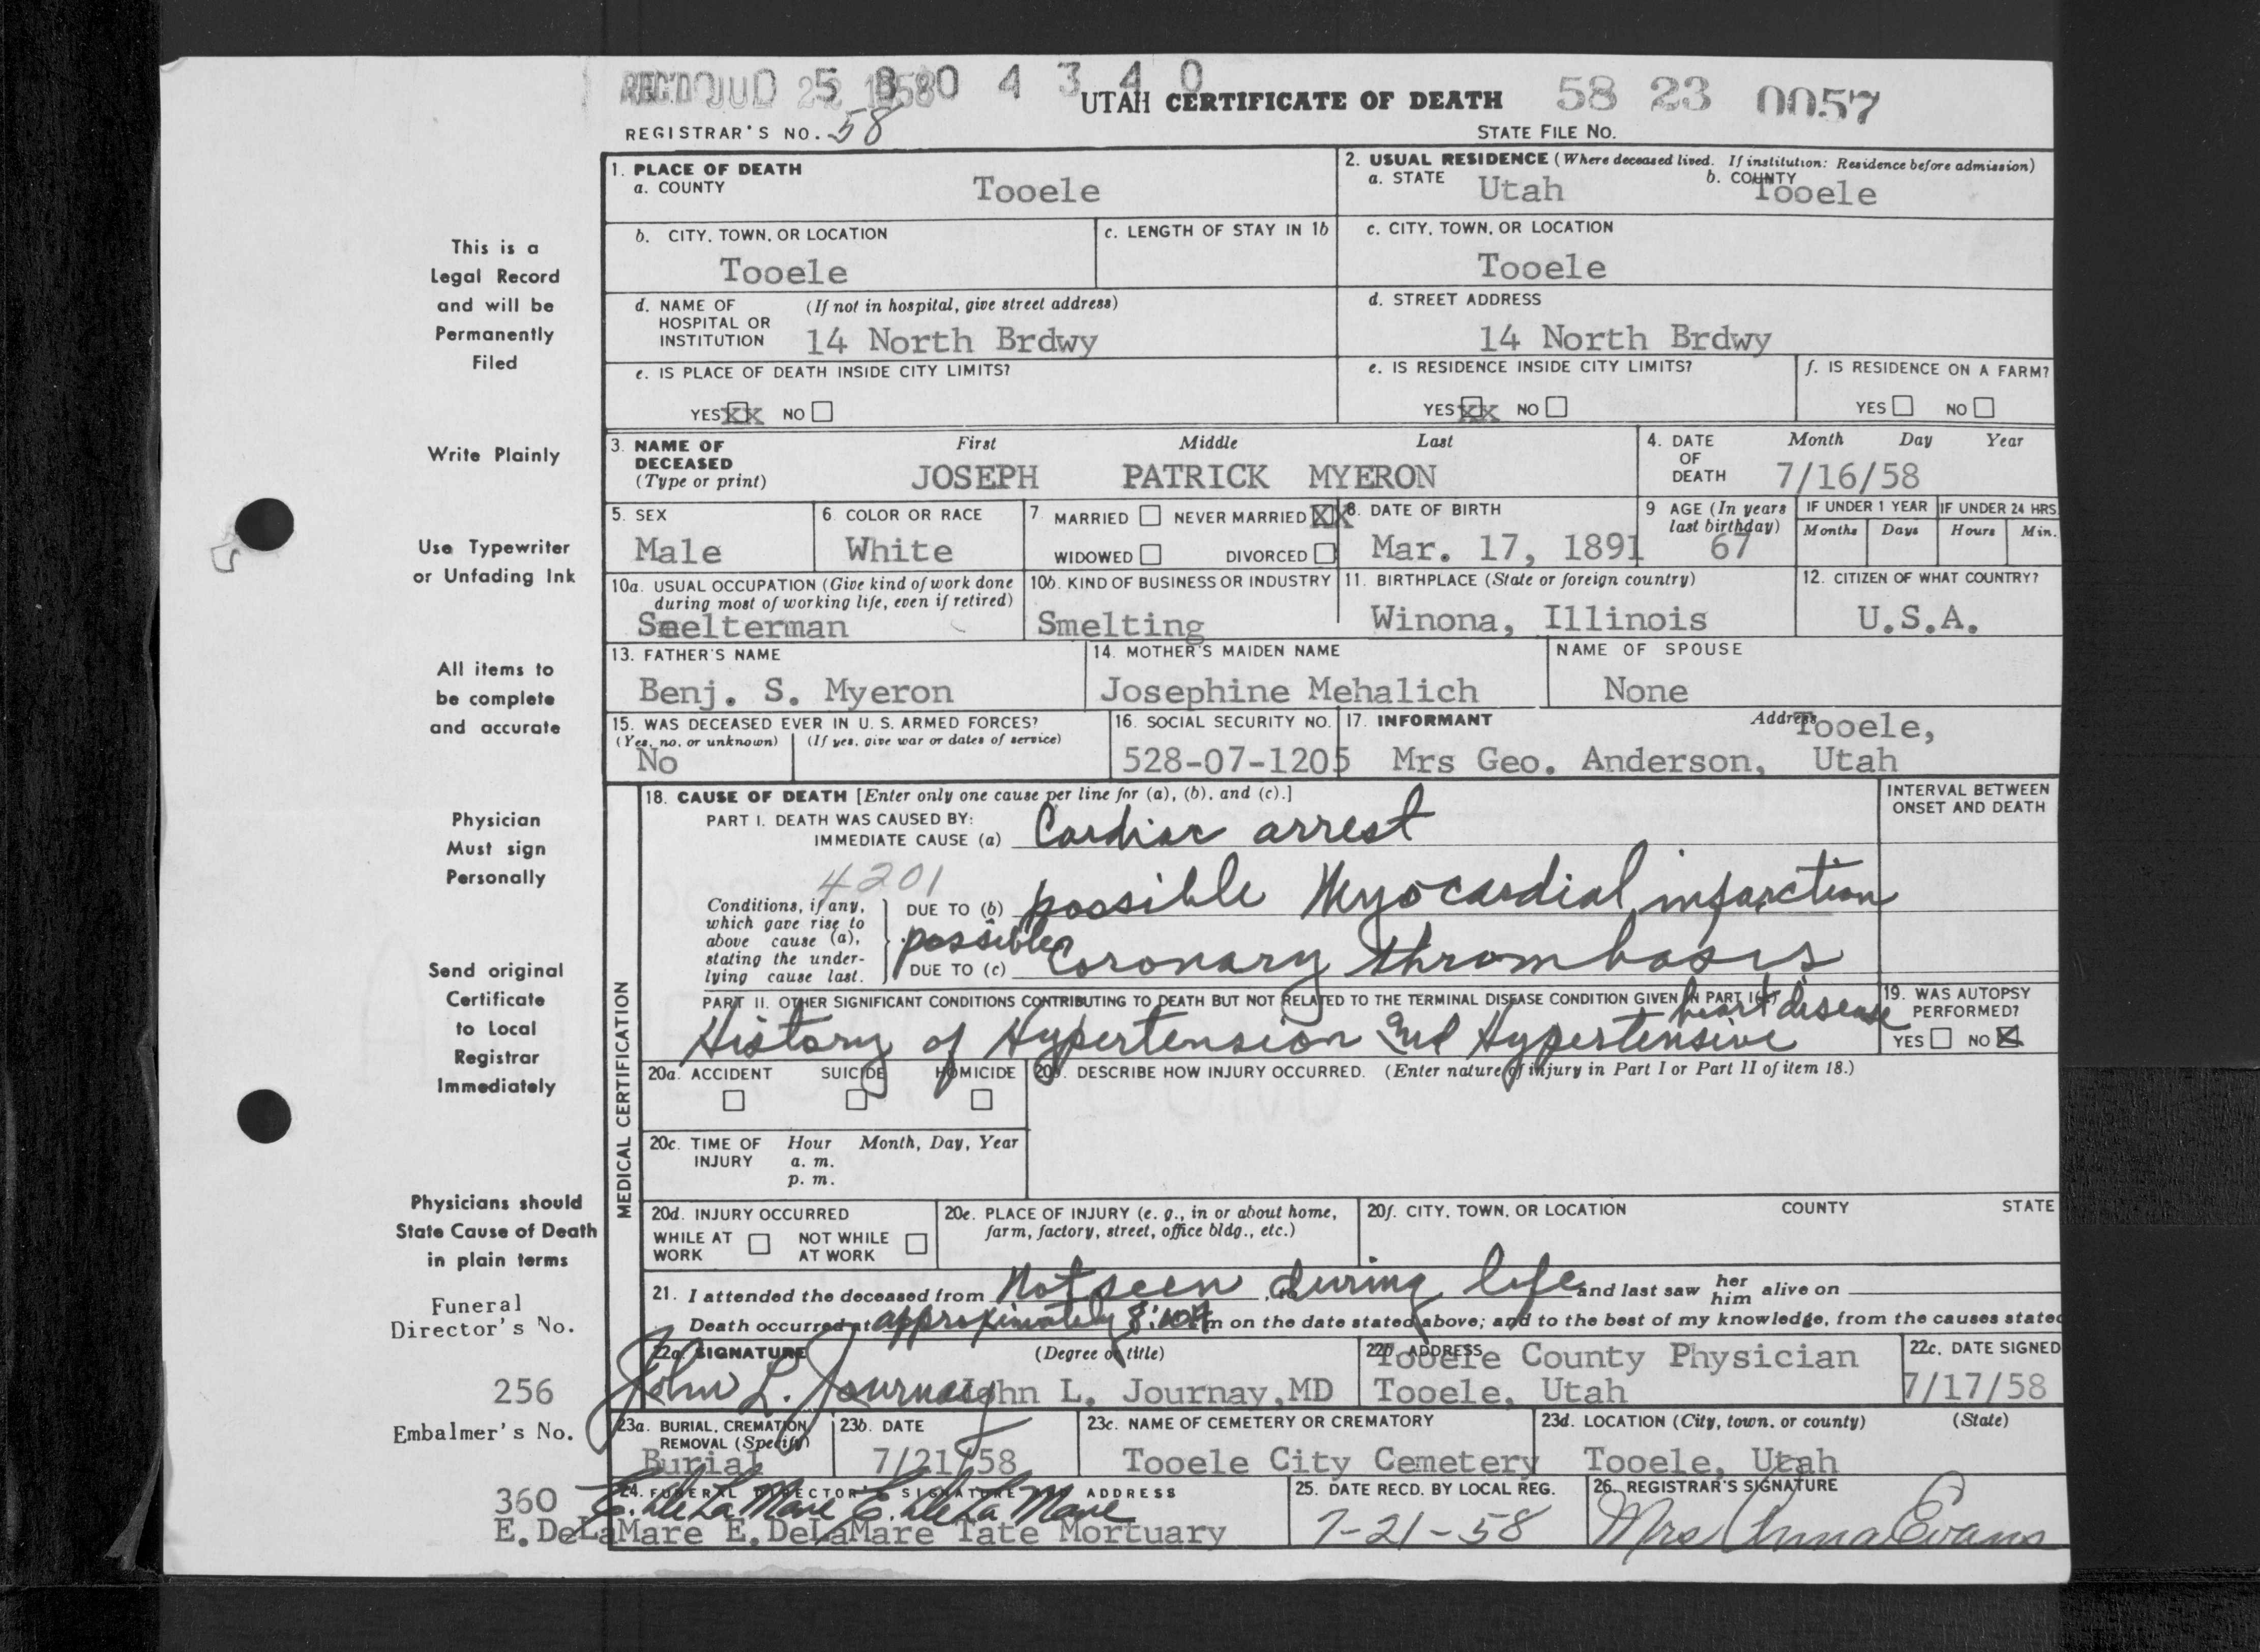 REC'D JUL 22 1958 5 8 0 4 3 4 0
UTAH CERTIFICATE OF DEATH 58 23 0057
REGISTRAR'S NO. 58 STATE FILE No.
1. PLACE OF DEATH
a. COUNTY Tooele
2. USUAL RESIDENCE (Where deceased lived. If institution: Residence before admission)
a. STATE Utah b. COUNTY Tooele
b. CITY, TOWN, OR LOCATION Tooele
c. LENGTH OF STAY IN 1b
c. CITY, TOWN, OR LOCATION Tooele
d. NAME OF HOSPITAL OR INSTITUTION (If not in hospital, give street address)
14 North Brdwy
d. STREET ADDRESS
14 North Brdwy
e. IS PLACE OF DEATH INSIDE CITY LIMITS?
YES xx NO
e. IS RESIDENCE INSIDE CITY LIMITS?
YES xx NO
f. IS RESIDENCE ON A FARM?
YES NO
3. NAME OF DECEASED (Type or print)
First Middle Last
JOSEPH PATRICK MYERON
4. DATE OF DEATH Month Day Year
7/16/58
5. SEX Male
6. COLOR OR RACE White
7. MARRIED NEVER MARRIED XX
WIDOWED DIVORCED
8. DATE OF BIRTH
Mar. 17, 1891
9 AGE (In years last birthday) 67
IF UNDER 1 YEAR Months Days
IF UNDER 24 HRS Hours Min.
10a. USUAL OCCUPATION (Give kind of work done during most of working life, even if retired)
Smelterman
10b. KIND OF BUSINESS OR INDUSTRY
Smelting
11. BIRTHPLACE (State or foreign country)
Winona, Illinois
12. CITIZEN OF WHAT COUNTRY?
U.S.A.
13. FATHER'S NAME
Benj. S. Myeron
14. MOTHER'S MAIDEN NAME
Josephine Mehalich
NAME OF SPOUSE
None
15. WAS DECEASED EVER IN U. S. ARMED FORCES?
(Yes, no, or unknown) (If yes, give war or dates of service)
No
16. SOCIAL SECURITY NO.
528-07-1205
17. INFORMANT Address
Mrs Geo. Anderson, Tooele, Utah
MEDICAL CERTIFICATION
18. CAUSE OF DEATH [Enter only one cause per line for (a), (b), and (c).]
INTERVAL BETWEEN ONSET AND DEATH
PART I. DEATH WAS CAUSED BY:
IMMEDIATE CAUSE (a) Cardiac arrest
4201
Conditions, if any, which gave rise to above cause (a), stating the underlying cause last.
DUE TO (b) possible Myocardial infarction
DUE TO (c) possible Coronary thrombosis
PART II. OTHER SIGNIFICANT CONDITIONS CONTRIBUTING TO DEATH BUT NOT RELATED TO THE TERMINAL DISEASE CONDITION GIVEN IN PART I(a)
History of Hypertension and Hypertensive heart disease
19. WAS AUTOPSY PERFORMED?
YES NO X
20a. ACCIDENT SUICIDE HOMICIDE
20b. DESCRIBE HOW INJURY OCCURRED. (Enter nature of injury in Part I or Part II of item 18.)
20c. TIME OF INJURY Hour Month, Day, Year
a. m.
p. m.
20d. INJURY OCCURRED
WHILE AT WORK NOT WHILE AT WORK
20e. PLACE OF INJURY (e. g., in or about home, farm, factory, street, office bldg., etc.)
20f. CITY, TOWN, OR LOCATION COUNTY STATE
21. I attended the deceased from Not seen during life and last saw her him alive on
Death occurred at approximately 8:10A m on the date stated above; and to the best of my knowledge, from the causes stated
22a. SIGNATURE (Degree or title)
John L. Journay John L. Journay, MD
22b. ADDRESS
Tooele County Physician
Tooele, Utah
22c. DATE SIGNED
7/17/58
23a. BURIAL, CREMATION REMOVAL (Specify)
Burial
23b. DATE
7/21/58
23c. NAME OF CEMETERY OR CREMATORY
Tooele City Cemetery
23d. LOCATION (City, town, or county) (State)
Tooele, Utah
24. FUNERAL DIRECTOR'S SIGNATURE ADDRESS
E. DeLaMare E. DeLaMare
E. DeLaMare E. DeLaMare Tate Mortuary
25. DATE RECD. BY LOCAL REG.
7-21-58
26. REGISTRAR'S SIGNATURE
Mrs Anna Evans
This is a
Legal Record
and will be
Permanently
Filed
Write Plainly
Use Typewriter
or Unfading Ink
All items to
be complete
and accurate
Physician
Must sign
Personally
Send original
Certificate
to Local
Registrar
Immediately
Physicians should
State Cause of Death
in plain terms
Funeral
Director's No.
256
Embalmer's No.
360